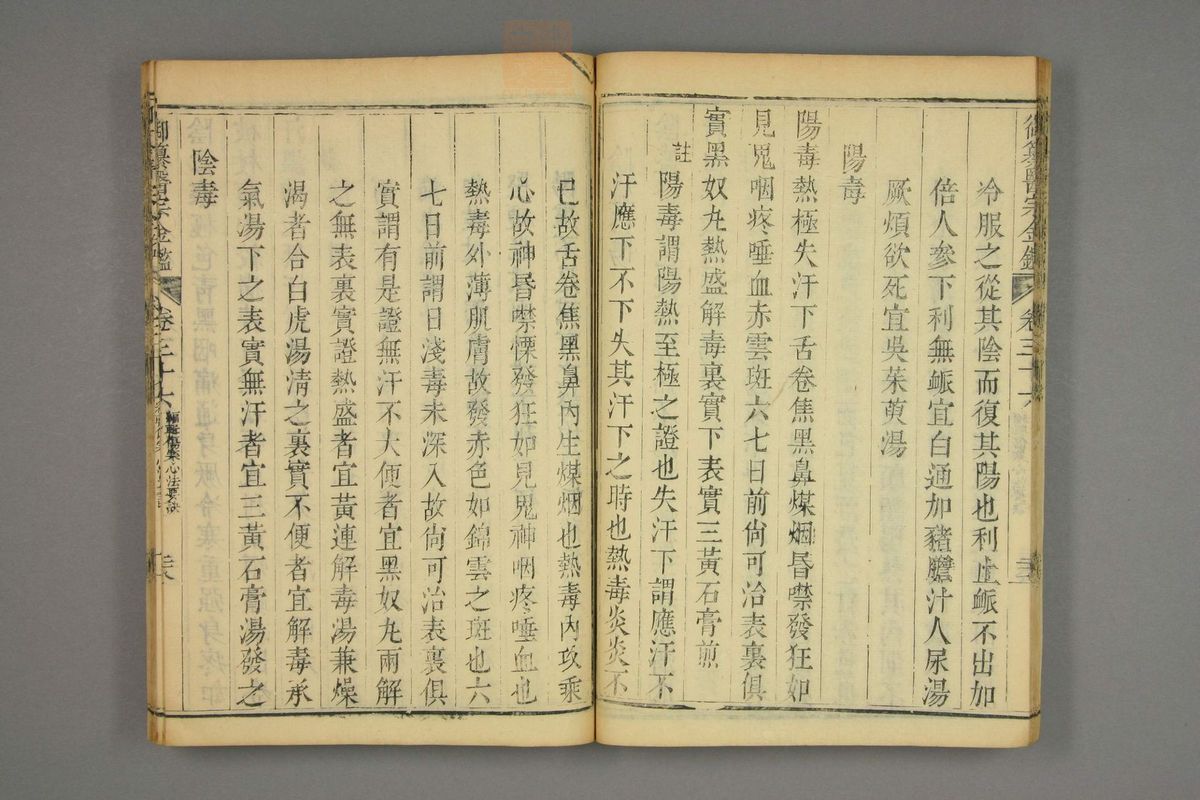 御纂醫宗金鑑 卷三十六
冷服之從其陰而復其陽也利止衇不出加
倍人參下利無衇宜白通加豬膽汁人尿湯
厥煩欲死宜吳茱萸湯
陽毒
陽毒熱極失汗下舌卷焦黑鼻煤烟昏噤發狂如
見鬼咽疼唾血赤雲斑六七日前尙可治表裏俱
實黑奴丸熱盛解毒裏實下表實三黃石膏煎
註
陽毒謂陽熱至極之證也失汗下謂應汗不
汗應下不下失其汗下之時也熱毒炎炎不
已故舌卷焦黑鼻內生煤烟也熱毒內攻乘
心故神昏噤慄發狂如見鬼神咽疼唾血也
熱毒外薄肌膚故發赤色如錦雲之斑也六
七日前謂日淺毒未深入故尙可治表裏俱
實謂有是證無汗不大便者宜黑奴丸兩解
之無表裏實證熱盛者宜黃連解毒湯兼燥
渴者合白虎湯清之裏實不便者宜解毒承
氣湯下之表實無汗者宜三黃石膏湯發之
陰毒
御纂醫宗金鑑 卷三十六 編輯傷寒心法要訣